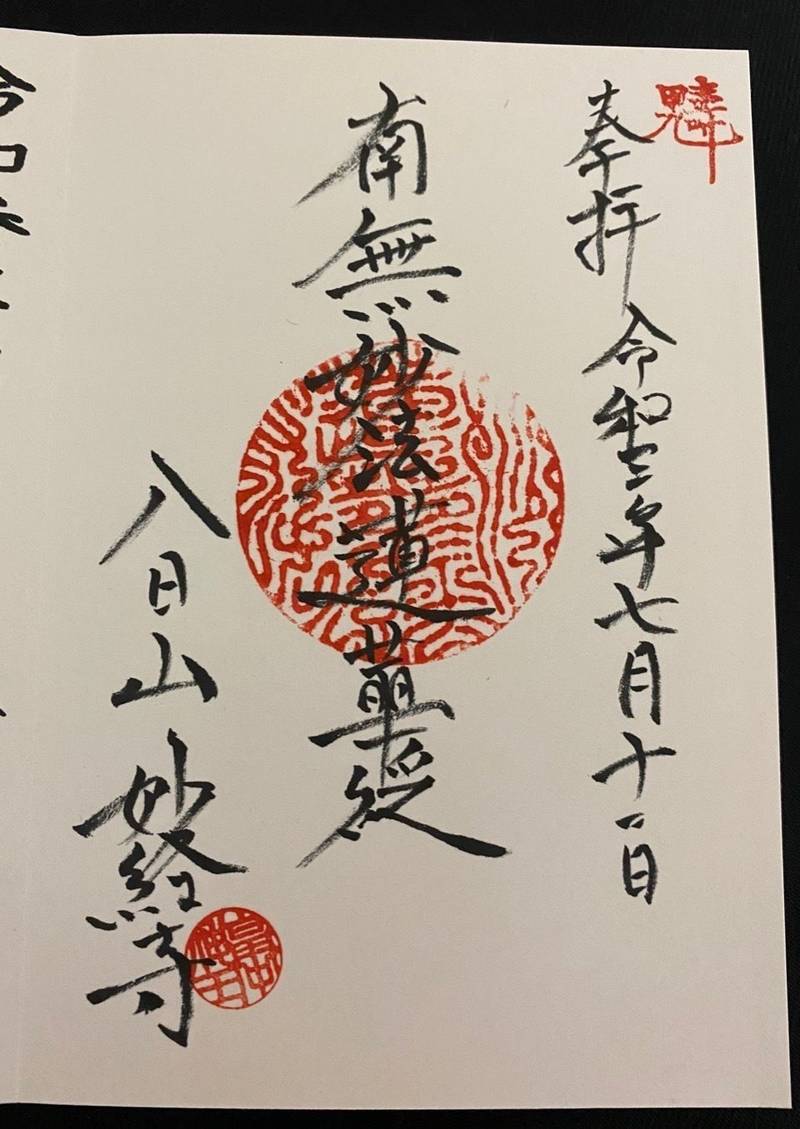 奉拝 令和三年七月十一日
南無妙法蓮華経
八日山 妙経寺